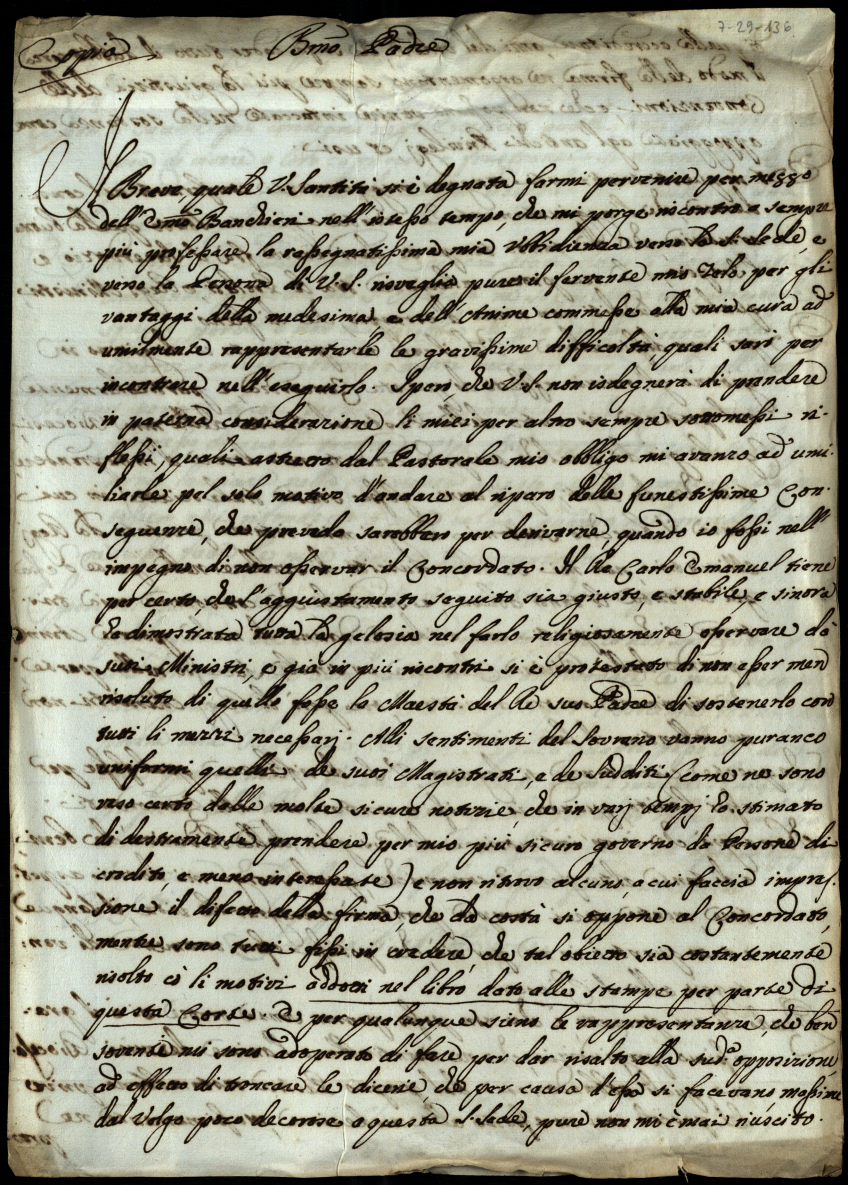 7-29-136
Copia
Bmō Padre
Il Breve, quale V. Santità si è degnata farmi pervenire per mezzo
dell' Emō Banchieri nell'istesso tempo, che mi porge incontro a sempre
più professare la rassegnatissima mia Ubbidienza verso la S. Sede, e
verso la Persona di V. S. risveglia pure il fervente mio Zelo per gli
vantaggi della medesima e dell'Anime commesse alla mia cura ad
umilmente rappresentarle le gravissime difficoltà, quali sarò per
incontrare nell'eseguirlo. Spero, che V. S. non isdegnerà di prendere
in paterna considerazione li miei per altro sempre sottomessi ri-
flessi, quali astretto dal Pastorale mio obbligo mi avanzo ad umi-
liarle pel solo motivo d'andare al riparo delle funestissime Con-
seguenze, che prevedo sarebbero per derivarne, quando io fossi nell'
impegno di non osservar il Concordato. Il Re Carlo Emanuel tiene
per certo che l'aggiustamento seguito sia giusto, e stabile, e sinora
ha dimostrata tutta la gelosia nel farlo religiosamente osservare da
suoi Ministri, e già in più incontri si è protestato di non esser men
risoluto di quello fosse la Maestà del Re suo Padre di sostenerlo con
tutti li mezzi necessarj. Alli sentimenti del Sovrano vanno puranco
uniformi quelli de suoi Magistrati, e de Sudditi (come ne sono
reso certo dalle molte sicure notizie, che in varj tempj ho stimato
di destramente prendere per mio più sicuro governo da Persone di
credito, e meno interessate) e non ritrovo alcuno, a cui faccia impres-
sione il difetto della firma, che da costà si oppone al Concordato,
mentre sono tutti fissi in credere che tal obietto sia costantemente
risolto co' li motivi addotti nel libro dato alle stampe per parte di
questa Corte. E per qualunque sieno le rappresentanze, che ben
sovente mi sono adoperato di fare per dar risalto alla sudᵃ opposizione,
ad effetto di troncare le dicerie, che per causa d'essa si facevano massime
dal Volgo poco decorose a questa S. Sede, pure non mi è mai riuscito.